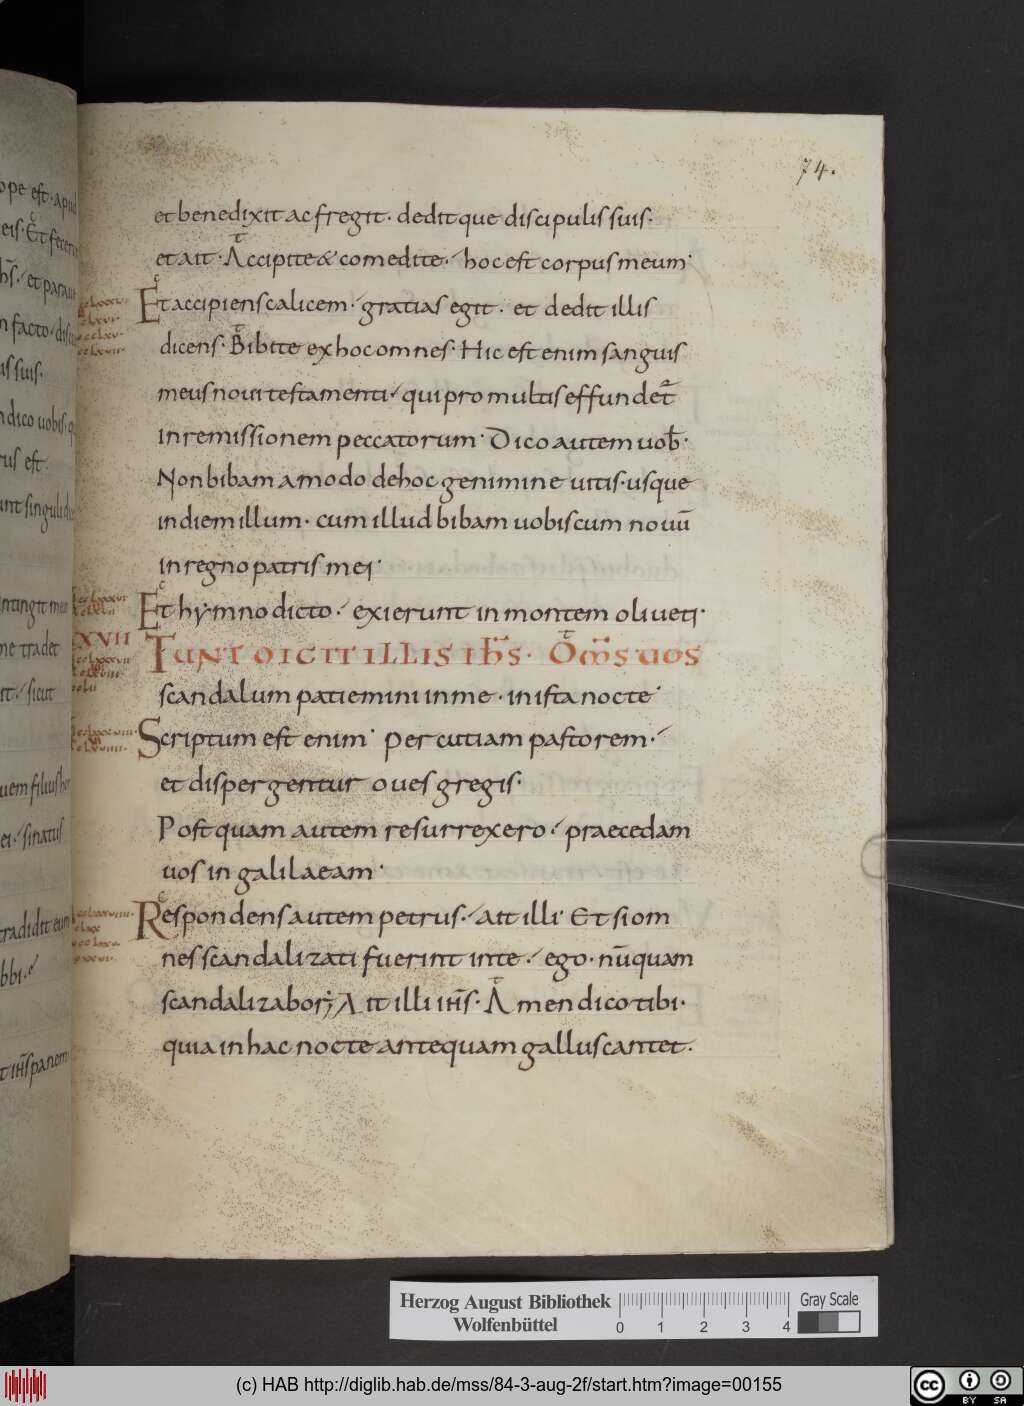 74.
et benedixit ac fregit· dedit que discipulis suis·
et ait· Accipite & comedite· hoc est corpus meum·
Et accipiens calicem· gratias egit· et dedit illis
dicens· Bibite ex hoc omnes· Hic est enim sanguis
meus noui testamenti· qui pro multis effundet᷑
in remissionem peccatorum· Dico autem uob̅·
Non bibam amodo de hoc genimine uitis· usque
in diem illum· cum illud bibam uobiscum nouū
in regno patris mei·
Et hymno dicto· exierunt in montem oliueti·
XXVII
TUNT DICIT ILLIS IHS̅· OM̅S UOS
scandalum patiemini in me· in ista nocte·
Scriptum est enim· percutiam pastorem·
et dispergentur oues gregis·
Postquam autem resurrexero· praecedam
uos in galilaeam·
Respondens autem petrus· ait illi· Et si om
nes scandalizati fuerint in te· ego· nūquam
scandalizabor; Ait illi ihs̅· Amen dico tibi·
quia in hac nocte antequam gallus cantet·
Herzog August Bibliothek
Wolfenbüttel
0 1 2 3 4
Gray Scale
(c) HAB http://diglib.hab.de/mss/84-3-aug-2f/start.htm?image=00155
cc BY SA